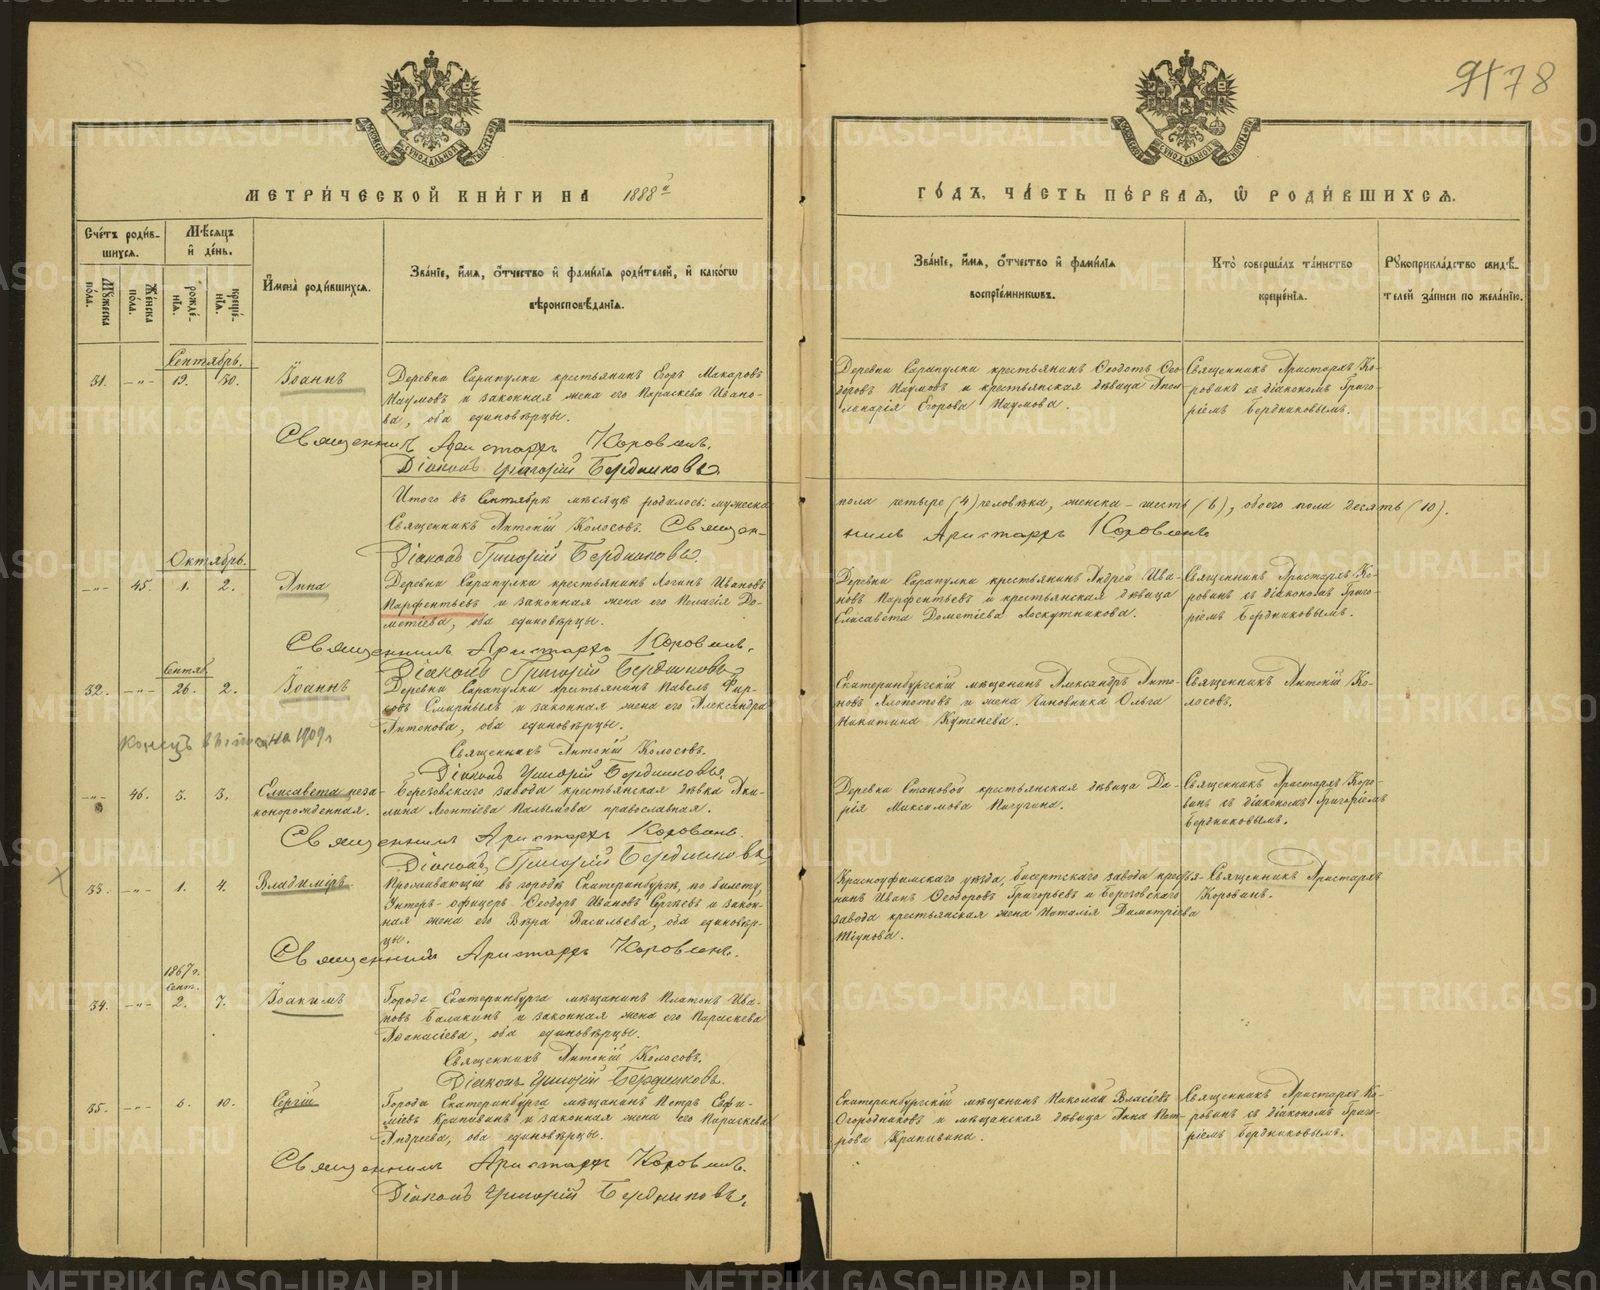 9178
МЕТРИ́ЧЕСКОЙ КНИ́ГИ НА 1888й
ГО́ДЪ, ЧА́СТЬ ПЕ́РВАЯ, Ѡ РОДИ́ВШИХСЯ.
Сче́тъ роди́в-
шихся.
Мꙋ́жеска по́ла.
Же́нска по́ла.
Мѣ́сяцъ
и де́нь.
рожде́-
нія.
креще́-
нія.
Имена̀ роди́вшихся.
Зва́ніе, и́мя, о́тчество и фами́лія роди́телей, и како́гѡ
вѣроисповѣ́данія.
Зва́ніе, и́мя, о́тчество и фами́лія
воспріе́мниковъ.
Кто̀ соверша́лъ та́инство
креще́нія.
Рꙋкоприкла́дство свидѣ́-
телей за́писи по жела́нію.
Сентябрь.
31. —"— 19. 30. Іоаннъ
Деревни Сарапулки крестьянинъ Егоръ Макаровъ
Наумовъ и законная жена его Параскева Ивано-
ва, оба единовѣрцы.
Священникъ Аристархъ Коровинъ.
Діаконъ Григорій Бердниковъ.
Деревни Сарапулки крестьянинъ Ѳеодотъ Ѳео-
доровъ Наумовъ и крестьянская дѣвица Апол-
линарія Егорова Наумова.
Священникъ Аристархъ Ко-
ровинъ съ діакономъ Григо-
ріемъ Бердниковымъ.
Итого въ Сентябрѣ мѣсяцѣ родилось: мужеска
пола четыре (4) человѣка, женска – шесть (6), обоего пола десять (10).
Священникъ Антоній Колосовъ. Священ-
никъ Аристархъ Коровинъ
Діаконъ Григорій Бердниковъ.
Октябрь.
—"— 45. 1. 2. Анна
Деревни Сарапулки крестьянинъ Логинъ Ивановъ
Парфентьевъ и законная жена его Пелагія До-
метіева, оба единовѣрцы.
Священникъ Аристархъ Коровинъ.
Діаконъ Григорій Бердниковъ
Деревни Сарапулки крестьянинъ Андрей Ива-
новъ Парфентьевъ и крестьянская дѣвица
Елисавета Дометіева Лоскутникова.
Священникъ Аристархъ Ко-
ровинъ съ діакономъ Григо-
ріемъ Бердниковымъ.
Сентяб.
32. —"— 26. 2. Іоаннъ
Деревни Сарапулки крестьянинъ Павелъ Фир-
совъ Смирныхъ и законная жена его Александра
Антонова, оба единовѣрцы.
Священникъ Антоній Колосовъ.
Діаконъ Григорій Бердниковъ.
Екатеринбургскій мѣщанинъ Александръ Анто-
новъ Молотовъ и жена чиновника Ольга
Никитина Кутенева.
Священникъ Антоній Ко-
лосовъ.
Конецъ 1909г
—"— 46. 3. 3. Елисавета неза-
конорожденная.
Березовскаго завода крестьянская дѣвка Аку-
лина Леонтіева Палымова православная.
Священникъ Аристархъ Коровинъ.
Діаконъ, Григорій Бердниковъ
Деревни Становой крестьянская дѣвица Да-
рія Максимова Пичугина.
Священникъ Аристархъ Коро-
винъ съ діакономъ Григоріемъ
Бердниковымъ.
33. —"— 1. 4. Владиміръ
Проживающій въ городѣ Екатеринбургѣ, по билету,
Унтеръ-офицеръ Ѳеодоръ Ивановъ Сергѣевъ и закон-
ная жена его Вѣра Васильева, оба единовѣр-
цы.
Священникъ Аристархъ Коровинъ.
Красноуфимскаго уѣзда, Бисертскаго завода крестья-
нинъ Иванъ Ѳеодоровъ Григорьевъ и Березовскаго
завода крестьянская жена Наталія Димитріева
Тіунова.
Священникъ Аристархъ
Коровинъ.
1867г.
Сент.
34. —"— 2. 7. Іоакимъ
Города Екатеринбурга мѣщанинъ Платонъ Ива-
новъ Балакинъ и законная жена его Параскева
Аѳанасіева, оба единовѣрцы.
Священникъ Антоній Колосовъ.
Діаконъ Григорій Бердниковъ.
35. —"— 6. 10. Сергій
Города Екатеринбурга мѣщанинъ Петръ Евфи-
міевъ Крапивинъ и законная жена его Параскева
Андреева, оба единовѣрцы.
Священникъ Аристархъ Коровинъ.
Діаконъ Григорій Бердниковъ.
Екатеринбургскій мѣщанинъ Николай Власіевъ
Огородниковъ и мѣщанская дѣвица Анна Пет-
рова Крапивина.
Священникъ Аристархъ Ко-
ровинъ съ діакономъ Григо-
ріемъ Бердниковымъ.
METRIKI.GASO-URAL.RU